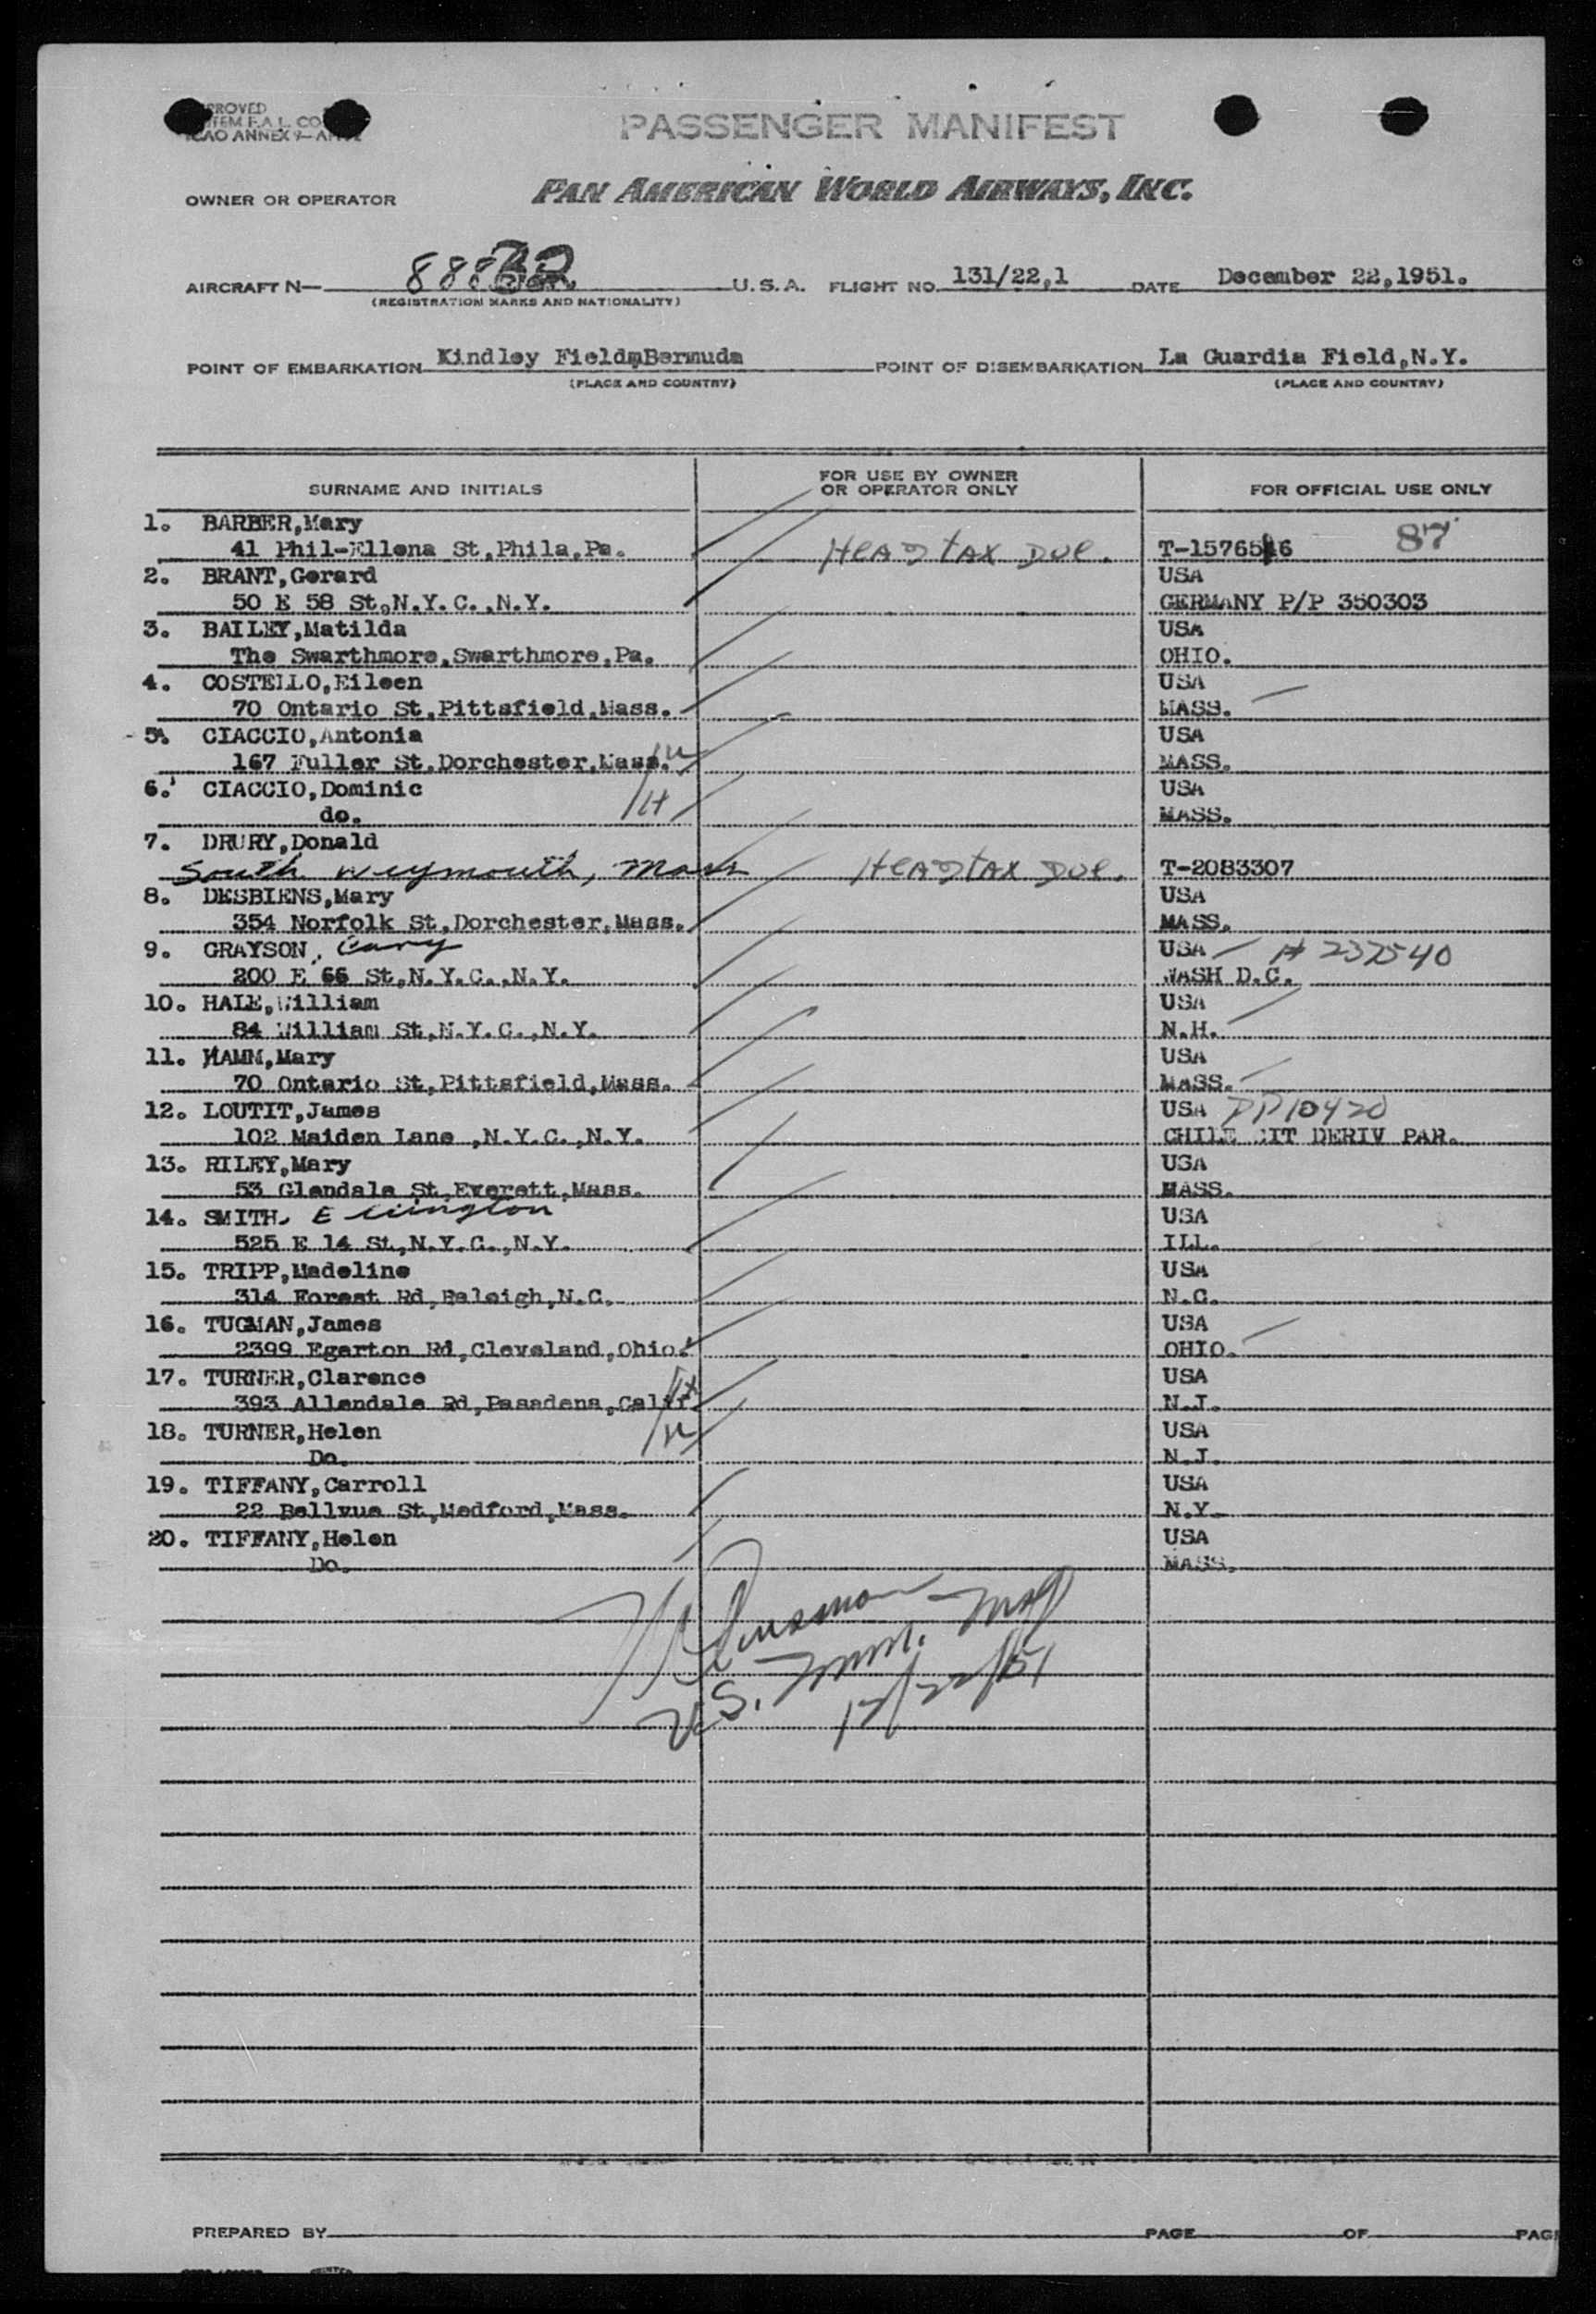 PASSENGER MANIFEST
OWNER OR OPERATOR PAN AMERICAN WORLD AIRWAYS, INC.
AIRCRAFT N— U.S.A. FLIGHT NO. 131/22,1 DATE December 22,1951.
(REGISTRATION MARKS AND NATIONALITY)
POINT OF EMBARKATION Kindley Field,Bermuda POINT OF DISEMBARKATION La Guardia Field,N.Y.
(PLACE AND COUNTRY) (PLACE AND COUNTRY)
SURNAME AND INITIALS FOR USE BY OWNER OR OPERATOR ONLY FOR OFFICIAL USE ONLY
1. BARBER,Mary 87
41 Phil-Ellena St,Phila,Pa. HEAD TAX DUE.
2. BRANT,Gerard USA
50 E 58 St,N.Y.C.,N.Y. GERMANY P/P 350303
3. BAILEY,Matilda USA
The Swarthmore,Swarthmore,Pa. OHIO.
4. COSTELLO,Eileen USA
70 Ontario St,Pittsfield,Mass. MASS.
5. CIACCIO,Antonia USA
167 Fuller St,Dorchester,Mass. W MASS.
6. CIACCIO,Dominic USA
do. H MASS.
7. DRURY,Donald
South Weymouth, Mass HEAD TAX DUE. T-2083307
8. DESBIENS,Mary USA
354 Norfolk St,Dorchester,Mass. MASS.
9. GRAYSON, Cary USA
200 E 66 St,N.Y.C.,N.Y. WASH D.C.
10. HALE,William USA
84 William St,N.Y.C.,N.Y. N.H.
11. HAMM,Mary USA
70 Ontario St,Pittsfield,Mass. MASS.
12. LOUTIT,James USA PP10420
102 Maiden Lane ,N.Y.C.,N.Y. CHILE CIT DERIV PAR.
13. RILEY,Mary USA
53 Glendale St,Everett,Mass. MASS.
14. SMITH, Ellington USA
525 E 14 St,N.Y.C.,N.Y. ILL.
15. TRIPP,Madeline USA
314 Forest Rd,Raleigh,N.C. N.C.
16. TUGMAN,James USA
2399 Egerton Rd,Cleveland,Ohio. OHIO.
17. TURNER,Clarence USA
393 Allendale Rd,Pasadena,Calif. H N.J.
18. TURNER,Helen USA
Do. W N.J.
19. TIFFANY,Carroll USA
22 Bellvue St,Medford,Mass. N.Y.
20. TIFFANY,Helen USA
Do. MASS.
U.S. Imm. Insp
12/22/51
PREPARED BY PAGE OF